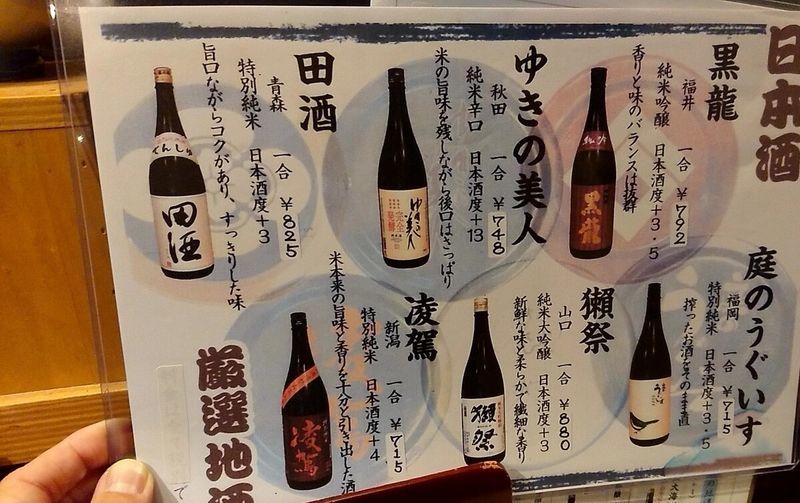 日本酒
黒龍
福井
純米吟醸 日本酒度+3.5
一合 ¥792
香りと味のバランスは抜群
黒龍
ゆきの美人
秋田
純米辛口 日本酒度+13
一合 ¥748
米の旨味を残しながら後口はさっぱり
ゆきの美人
田酒
青森
特別純米 日本酒度+3
一合 ¥825
旨口ながらコクがあり、すっきりした味
でんしゅ
田酒
庭のうぐいす
福岡
特別純米 日本酒度+3.5
一合 ¥715
搾ったお酒をそのまま直
獺祭
山口
純米大吟醸 日本酒度+3
一合 ¥880
新鮮な味と柔らかで繊細な香り
獺祭
凌駕
新潟
特別純米 日本酒度+4
一合 ¥715
米本来の旨味と香りを十分と引き出した酒
凌駕
厳選地酒